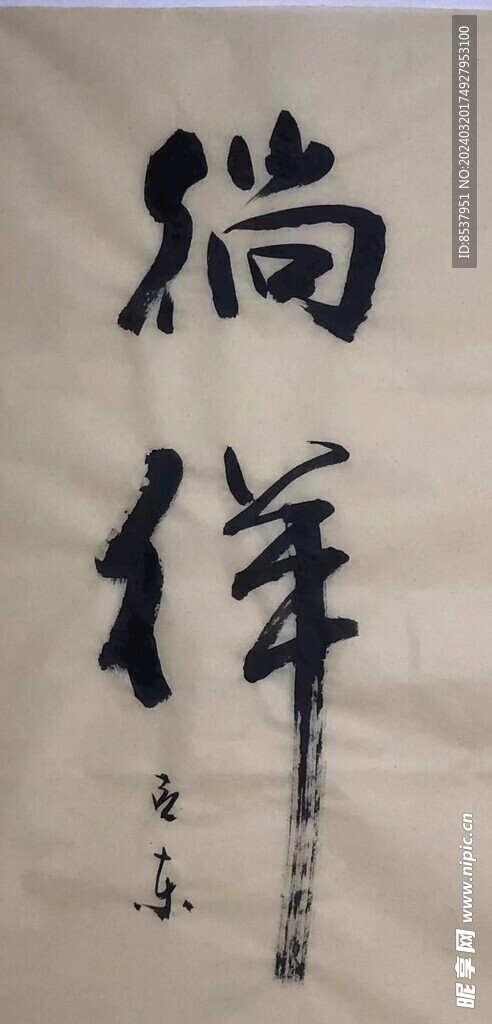 徜
徉
ID:8537951 NO:20240320174927953100
昵享网 www.nipic.cn